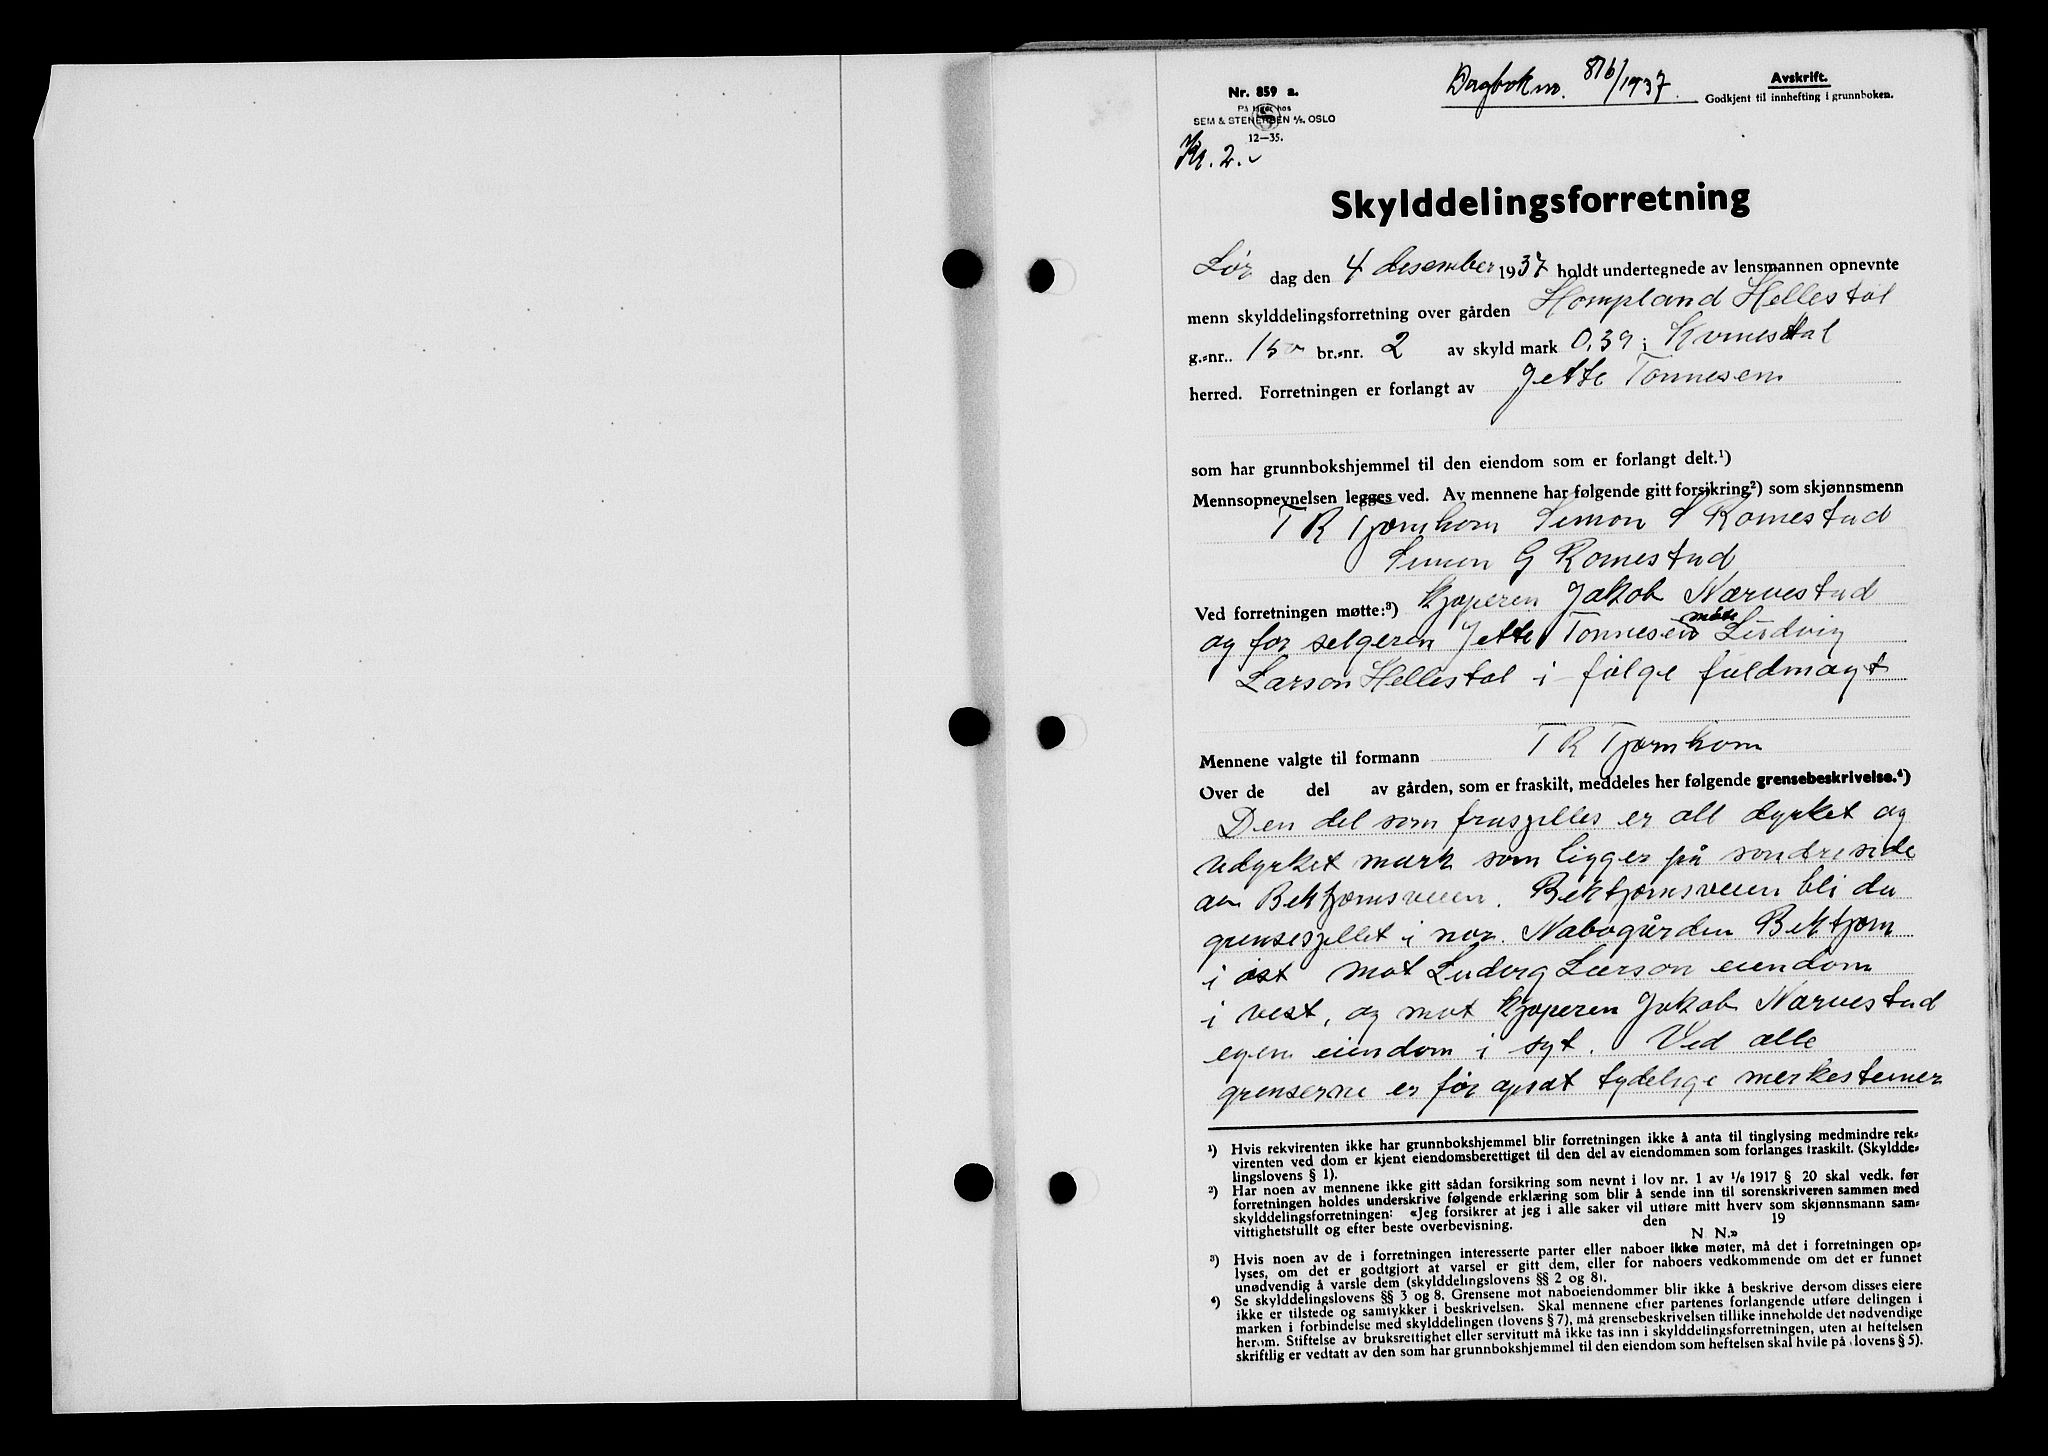 Dagbok no. 816/1937.
Avskrift.
Godkjent til innhefting i grunnboken.
Nr. 859 a.
På lager hos
SEM & STENERSEN A/S, OSLO
12-35.
Kr. 2.-
Skylddelingsforretning
Lør dag den 4 desember 1937 holdt undertegnede av lensmannen opnevnte
menn skylddelingsforretning over gården Hompland Hellestøl
g.-nr. 150 br.-nr. 2 av skyld mark 0,39 i Kvinesdal
herred. Forretningen er forlangt av Jette Tonnesen
som har grunnbokshjemmel til den eiendom som er forlangt delt.¹)
Mennsopnevnelsen legges ved. Av mennene har følgende gitt forsikring²) som skjønnsmenn
T R Tjørnhom Simon S Romestad
Simon G Romestad
Ved forretningen møtte:³) kjøperen Jakob Narvestad
og for selgeren Jette Tonnesen møtte Ludvig
Larson Hellestøl i følge fuldmagt
Mennene valgte til formann T R Tjørnhom
Over de del av gården, som er fraskilt, meddeles her følgende grensebeskrivelse.⁴)
Den del som fraskilles er all dyrket og
udyrket mark som ligger på søndre side
av Bektjørnsveien. Bektjørnsveien bli da
grenseskillet i nor. Nabogården Bektjørn
i øst mot Ludvig Larson eiendom
i vest, og mot kjøperen Jakob Narvestad
egen eiendom i syt. Ved alle
grenserne er før opsat tydelige merkestener
¹) Hvis rekvirenten ikke har grunnbokshjemmel blir forretningen ikke å anta til tinglysing medmindre rek-
virenten ved dom er kjent eiendomsberettiget til den del av eiendommen som forlanges fraskilt. (Skyldde-
lingslovens § 1).
²) Har noen av mennene ikke gitt sådan forsikring som nevnt i lov nr. 1 av 1/6 1917 § 20 skal vedk. før
forretningen holdes underskrive følgende erklæring som blir å sende inn til sorenskriveren sammen med
skylddelingsforretningen: «Jeg forsikrer at jeg i alle saker vil utføre mitt hverv som skjønnsmann sam-
vittighetsfullt og efter beste overbevisning. den 19
N. N.»
³) Hvis noen av de i forretningen interesserte parter eller naboer ikke møter, må det i forretningen op-
lyses, om det er godtgjort at varsel er gitt dem, eller for naboers vedkommende om det er funnet
unødvendig å varsle dem (skylddelingslovens §§ 2 og 8).
⁴) Se skylddelingslovens §§ 3 og 8. Grensene mot naboeiendommer blir ikke å beskrive dersom disses eiere
ikke er tilstede og samtykker i beskrivelsen. Skal mennene efter partenes forlangende utføre delingen i
marken i forbindelse med skylddelingen (lovens § 7), må grensebeskrivelsen tillike inneholde det nødvendige
herom. Stiftelse av bruksrettighet eller servitutt må ikke tas inn i skylddelingsforretningen, uten at heftelsen
skriftlig er vedtatt av den som har grunnbokshjemmel til den eiendom som heftelsen skal hvile på (lovens § 5).